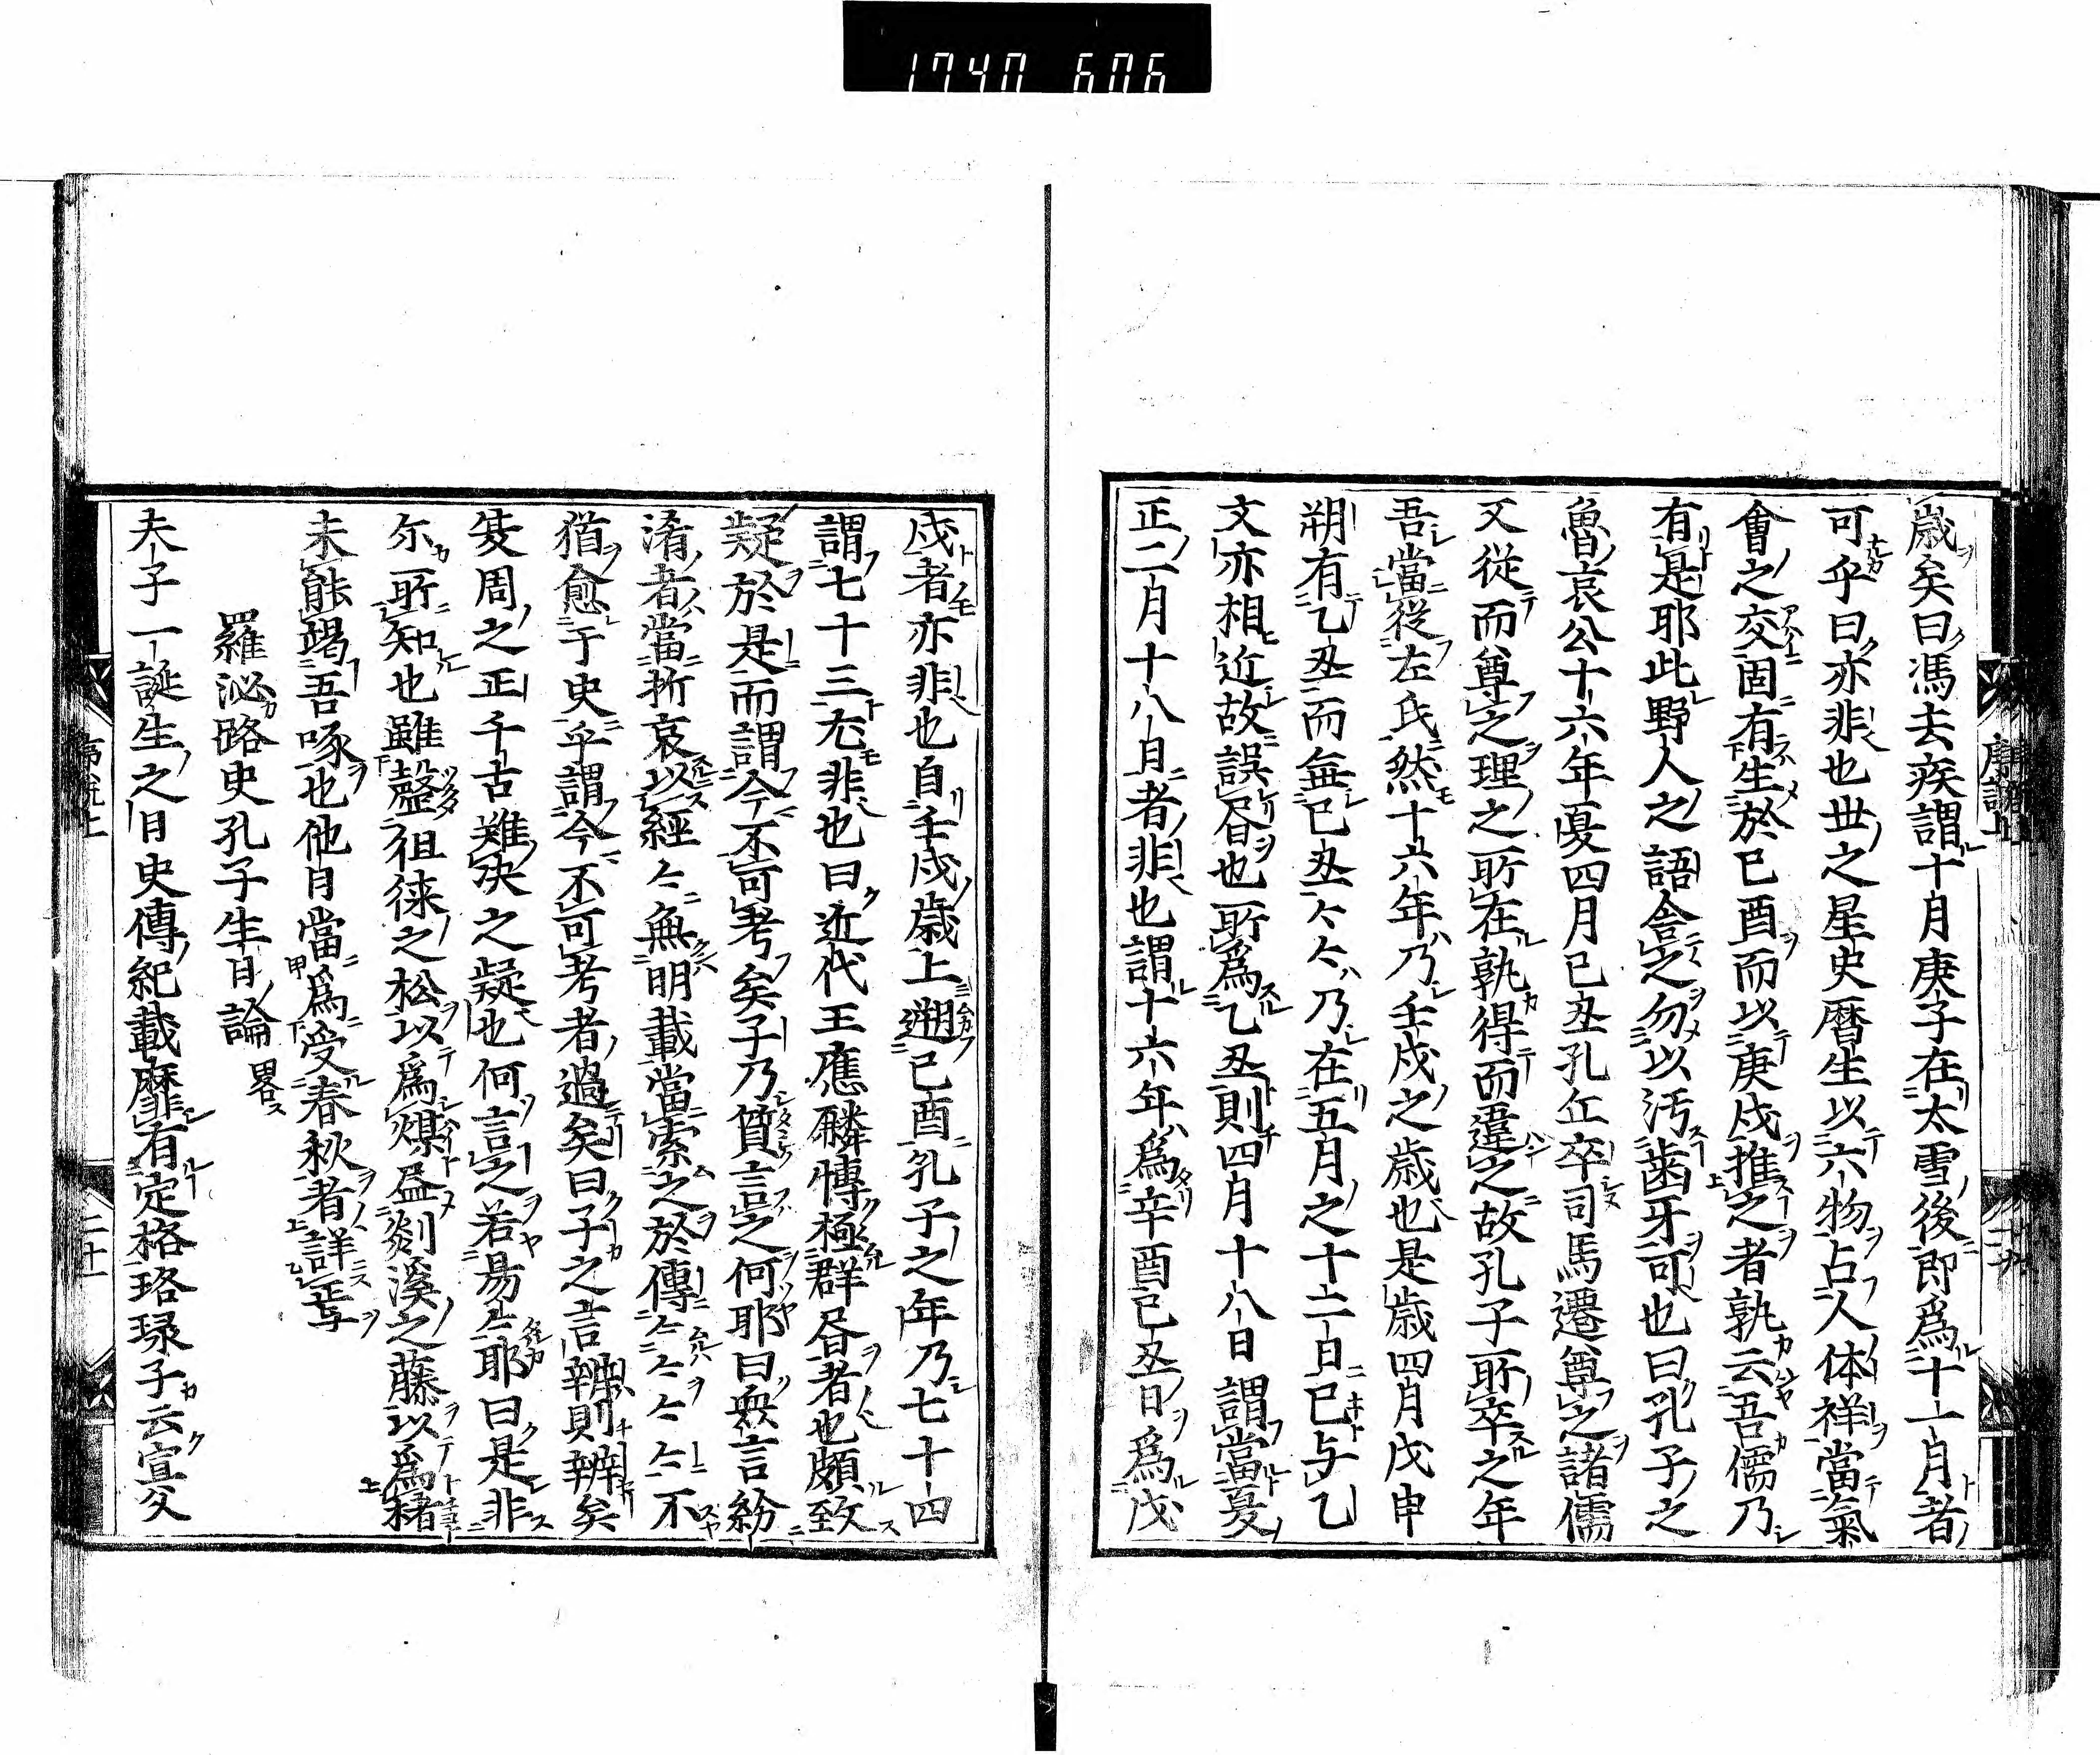 1740 606
歳矣曰馮去疾謂十月庚子在太雪後即爲十一月者
可乎曰亦非也世之星史暦生以六物占人体祥當氣
會之交固有生於已酉而以庚戌推之者孰云吾儒乃
有是耶此野人之語舎之勿以汚歯牙可也曰孔子之
魯哀公十六年夏四月已丑孔丘卒司馬遷尊之諸儒
又從而尊之理之所在孰得而違之故孔子所卒之年
吾當從左氏然十六年乃壬戌之歳也是歳四月戊申
朔有乙丑而無已丑〻〻乃在五月之十二日已与乙
文亦相近故誤㫺也所爲乙丑則四月十八日謂當夏
正二月十八日者非也謂十六年爲辛酉已丑日爲戊
戌者亦非也自壬戌歳上遡已酉孔子之年乃七十四
謂七十三尤非也曰近代王應麟慱極群㫺者也頗致
疑於是而謂今不可考矣子乃質言之何耶曰衆言紛
淆者當折衷以經〻無明載當索之於傳〻〻〻〻不
猶愈于史乎謂今不可考者過矣曰子之言辨則辨矣
夋周之正千古難决之疑也何言之若易〻耶曰是非
尓所知也雖罄徂徠之松以爲煤盡剡溪之藤以爲楮
未能竭吾啄也他日當爲受春秋者詳註焉
羅泌路史孔子生日論 畧
夫子一誕生之日史傳紀載靡有定格珞琭子云宣父